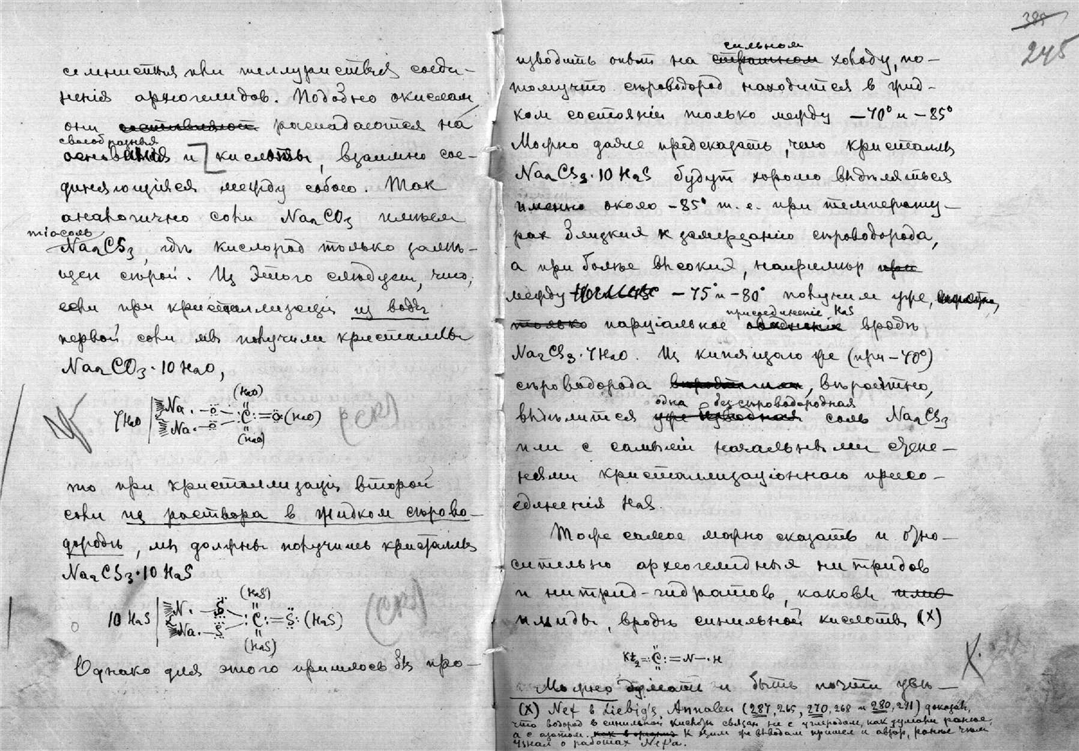 селнистыя или теллуристыя соеди-
ненія археогелидов. Подобно окислам,
они распадаются на
своеобразныя
и кислоты, взаимно сое-
диняющіяся между собою. Так
аналогично соли Na2CO3 имеем
тіосоль
Na2CS3, гдѣ кислород только замѣ-
щен сѣрой. Из этого слѣдует, что,
если при кристаллизаціи из воды
первой соли мы получили кристаллы
Na2CO3·10H2O,
7H2O Na· –O– (H2O) :C:=O(H2O)
Na· –O– (H2O)
то при кристаллизаціи второй
соли из раствора в жидком сѣрово-
дородѣ, мы должны получить кристаллы
Na2CS3·10H2S
10H2S Na· S (H2S) :C:=S:(H2S)
Na· S (H2S)
Однако для этого пришлось бы про-
245
сильном
изводить опыт на холоду, по-
тому что сѣроводород находится в жид-
ком состояніи только между –70° и –85°
Можно даже предсказать, что кристаллы
Na2CS3·10H2S будут хорошо выдѣляться
именно около –85° т. е. при температу-
рах близких к замерзанію сѣроводорода,
а при болѣе высоких, например
между –75° и –80° получим уже,
присоединеніе H2S
парціальное вродѣ
Na2CS3·7H2O. Из кипящаго же (при –70°)
сѣроводорода, вѣроятно,
одна безсѣроводородная
выдѣлится соль Na2CS3
или с самыми начальными степе-
нями кристаллизаціоннаго присо-
единенія H2S
Тоже самое можно сказать и отно-
сительно археогелидных нитридов
и нитрид-гидратов, каковы
имиды, вродѣ синильной кислоты (X)
:C:=N–·H
Можно думать и быть почти увѣ-
(X) Nef в Liebig's Annalen (287, 265, 270, 268 и 280, 291) доказал,
что водород в синильной кислотѣ связан не с углеродом, как думали раньше,
а с азотом. К этим же выводам пришел и автор, раньше чѣм
узнал о работах Nef'а.